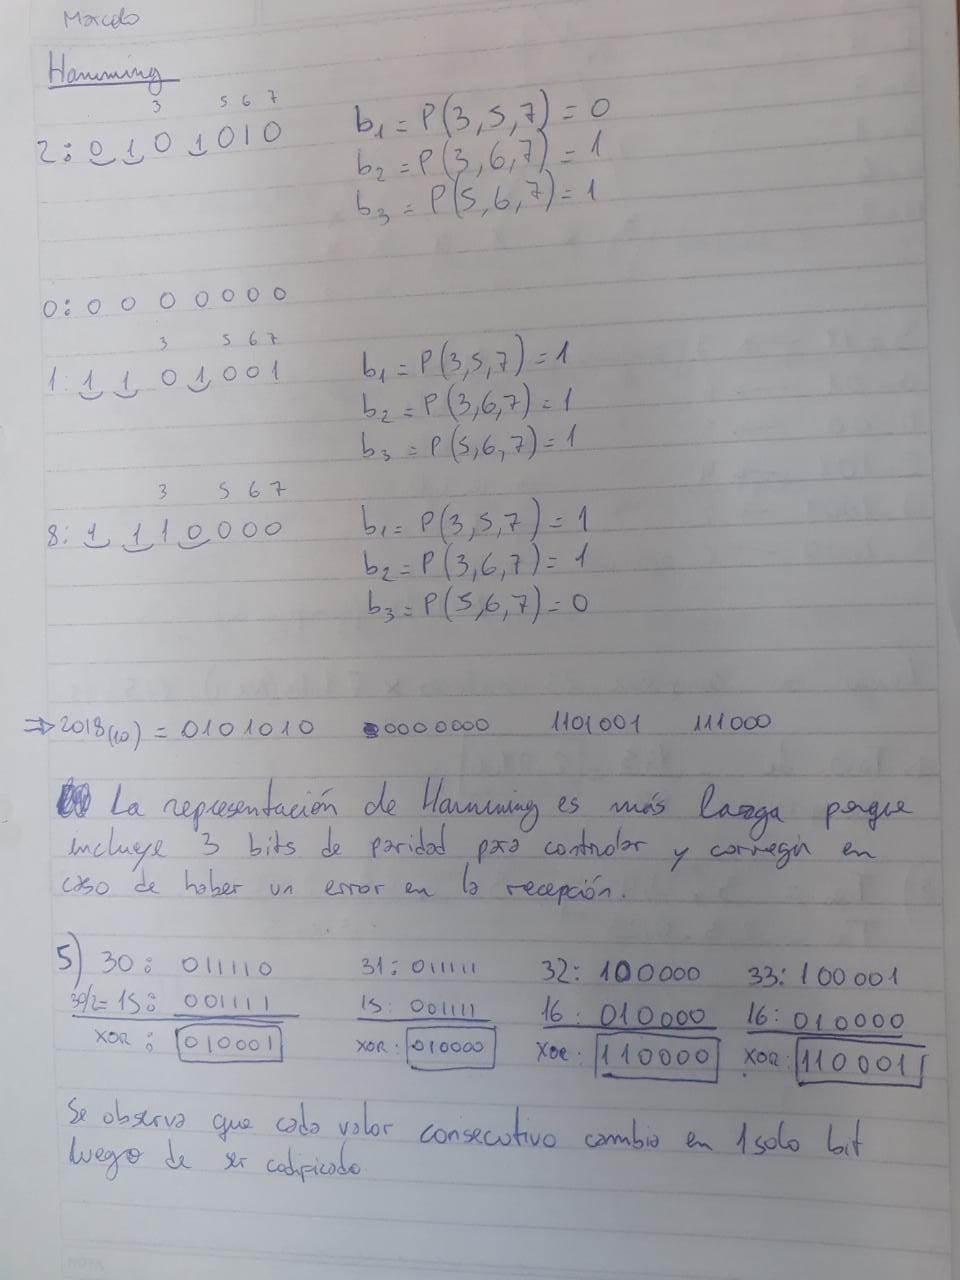 Marcelo
Hamming
3 5 6 7
2: 0 1 0 1 0 1 0 b1 = P(3,5,7) = 0
b2 = P(3,6,7) = 1
b3 = P(5,6,7) = 1
0: 0 0 0 0 0 0 0
3 5 6 7
1: 1 1 0 1 0 0 1 b1 = P(3,5,7) = 1
b2 = P(3,6,7) = 1
b3 = P(5,6,7) = 1
3 5 6 7
8: 1 1 1 0 0 0 0 b1 = P(3,5,7) = 1
b2 = P(3,6,7) = 1
b3 = P(5,6,7) = 0
⇒ 2018(10) = 0101010 0000000 1101001 111000
La representación de Hammimg es más larga porque
incluye 3 bits de paridad para controlar y corregir en
caso de haber un error en la recepción.
5) 30: 011110 31: 011111 32: 100000 33: 100001
30/2=15: 001111 15: 001111 16: 010000 16: 010000
XOR: 010001 XOR: 010000 XOR: 110000 XOR: 110001
Se observa que cada valor consecutivo cambia en 1 solo bit
luego de ser codificado.
NOTA